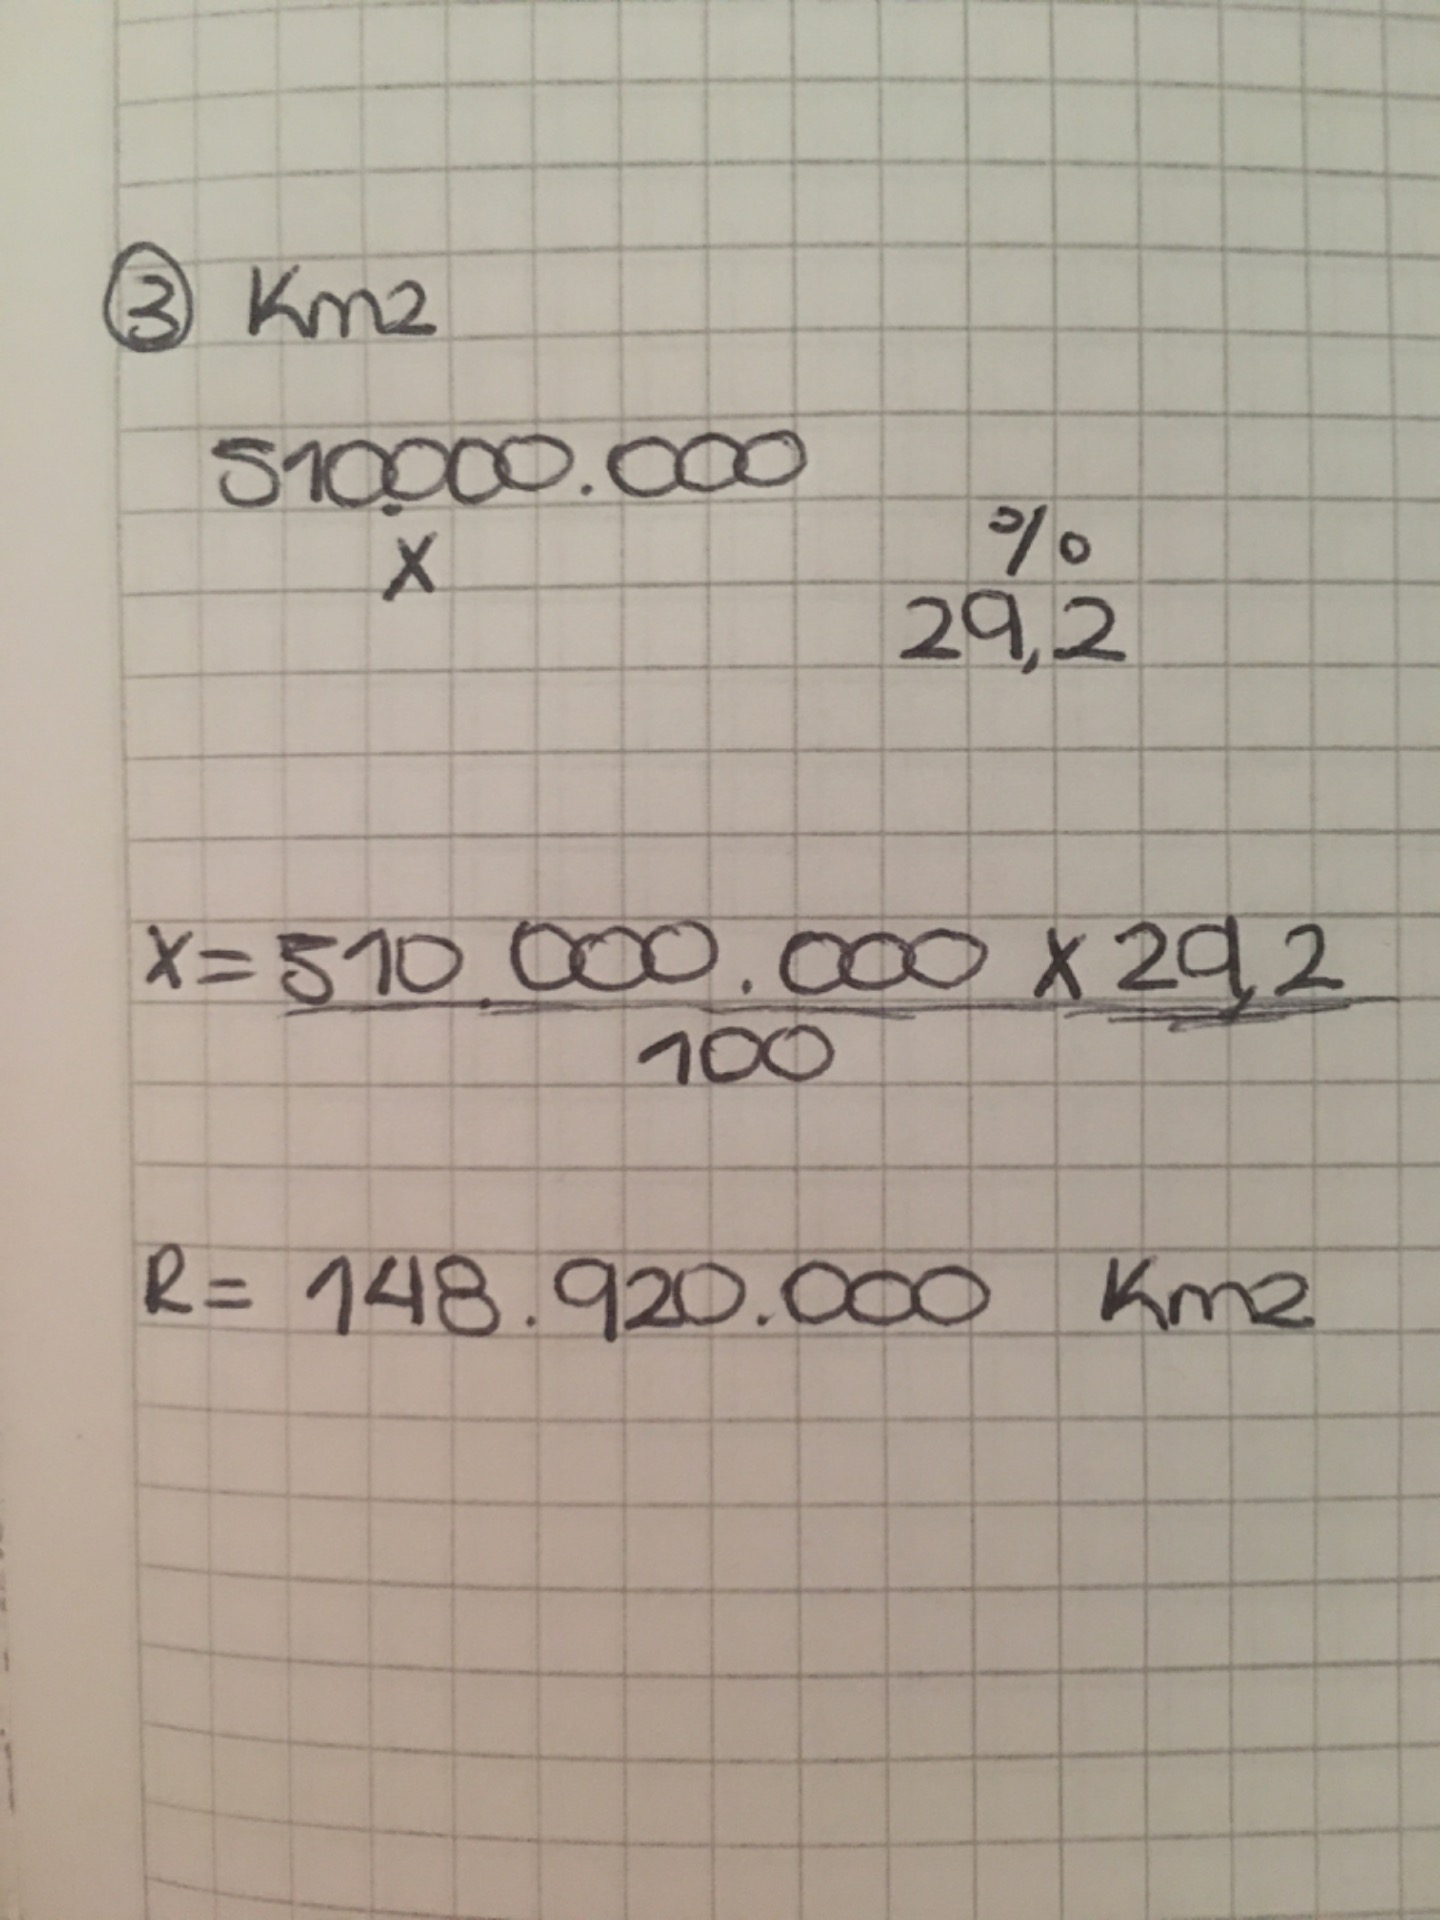 ③ Km2
510.000.000
%
X
29,2
X= 510.000.000 X 29,2
100
R= 148.920.000 Km2